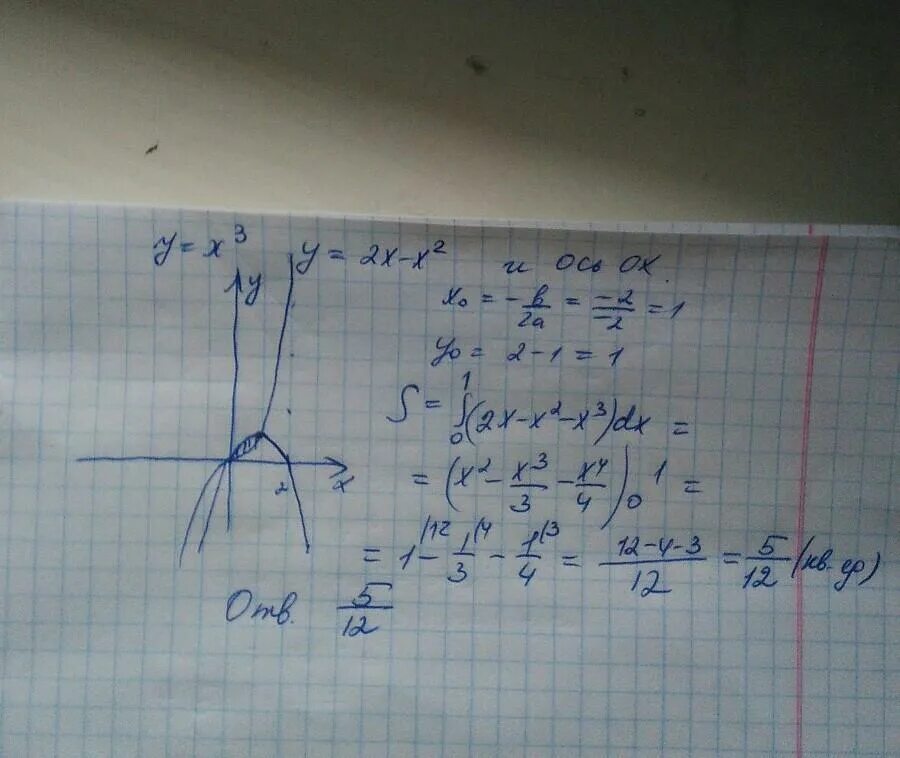 y = x³ y = 2x-x² и ось ОХ.
y
x₀ = -b/2a = -2/-2 = 1
y₀ = 2-1 = 1
S = ∫₀¹(2x-x²-x³)dx =
2 x
= (x² - x³/3 - x⁴/4)₀¹ =
= 1(12 - 1/3(4 - 1/4(3 = 12-4-3/12 = 5/12 (кв. ед)
Отв. 5/12